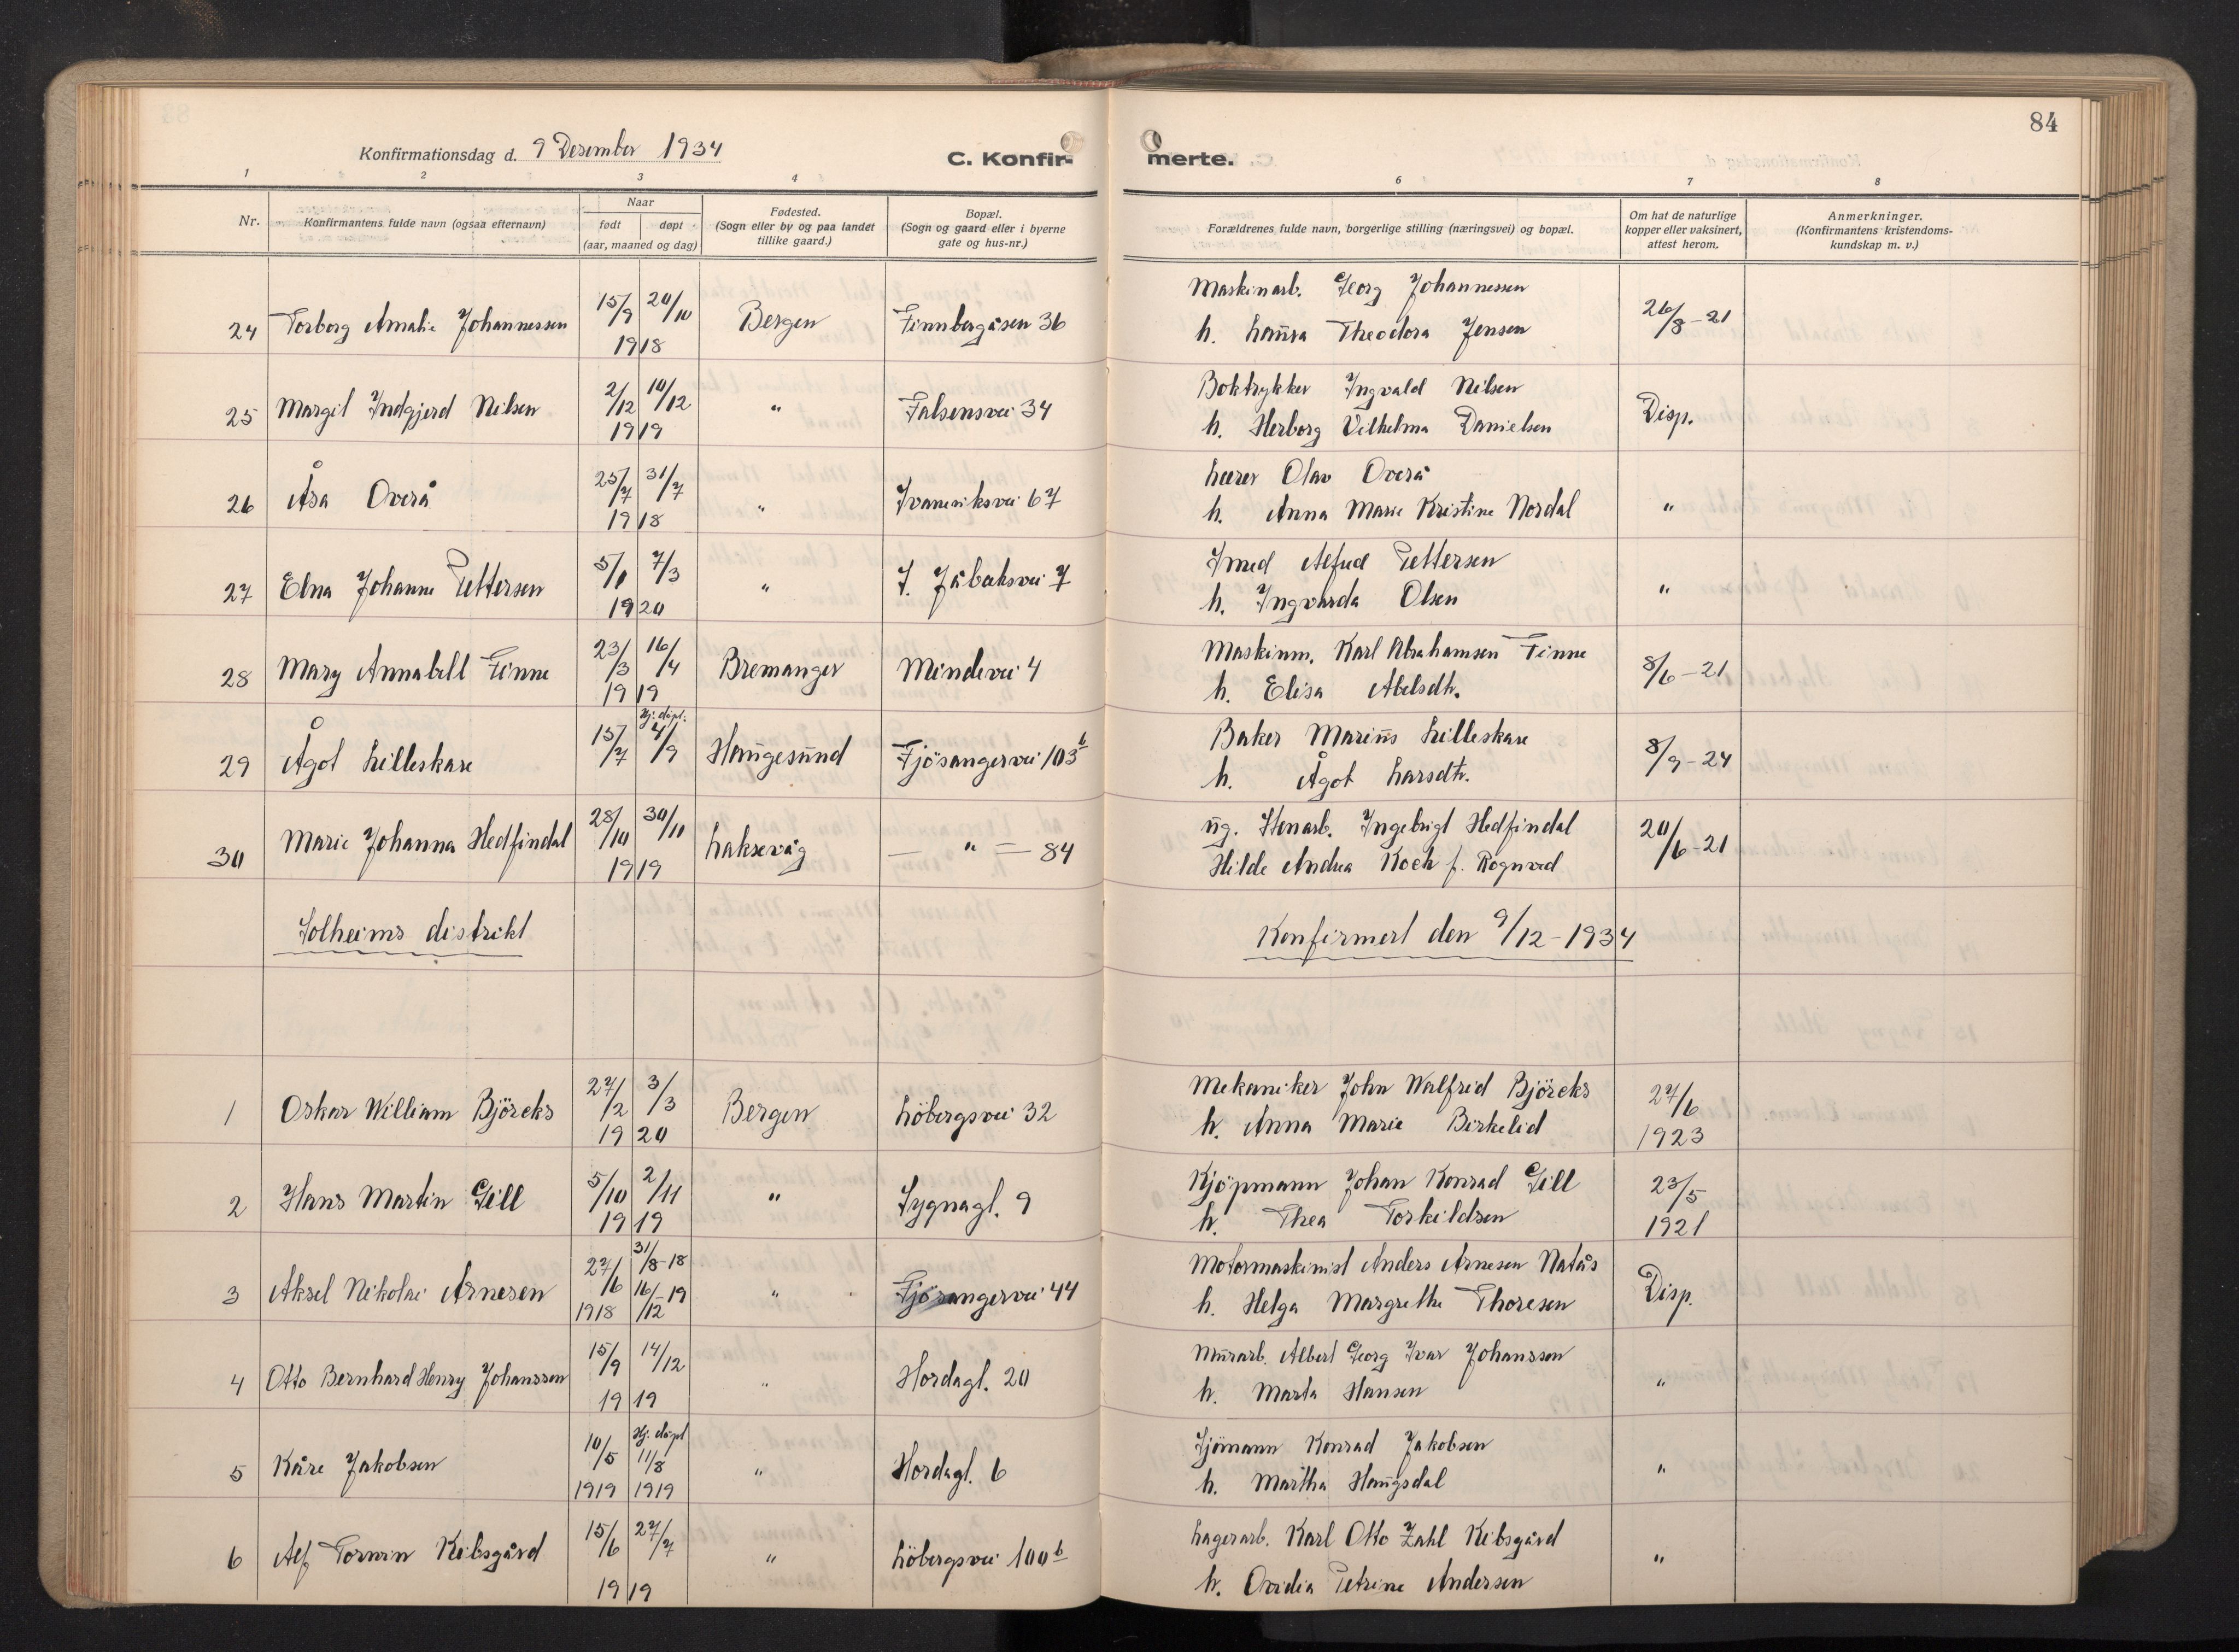 84
Konfirmationsdag d. 9 Desember 1934
C. Konfir-
merte.
1 2 3 4 6 7 8
Nr.
Konfirmantens fulde navn (ogsaa efternavn)
Naar
født døpt
(aar, maaned og dag)
Fødested.
(Sogn eller by og paa landet
tillike gaard.)
Bopæl.
(Sogn og gaard eller i byerne
gate og hus-nr.)
Forældrenes fulde navn, borgerlige stilling (næringsvei) og bopæl.
Om hat de naturlige
kopper eller vaksinert,
attest herom.
Anmerkninger.
(Konfirmantens kristendoms-
kundskap m. v.)
24 Torborg Amalie Johannessen 15/9 20/10 1918 Bergen Finnbergåsen 36
Maskinarb. Georg Johannessen
h. Laura Theodora Jensen
26/8-21
25 Margit Indgjerd Nilsen 2/12 10/12 1919 " Falsensvei 34
Boktrykker Ingvald Nilsen
h. Herborg Vilhelma Danielsen
Disp.
26 Åsa Overå 25/7 31/7 1918 " Ivareriksvei 67
Lærer Olav Overå
h. Anna Marie Kristine Nordal
"
27 Elna Johanne Pettersen 5/1 7/3 1920 " J. Jåbaksvei 7
Smed Alfred Pettersen
h. Ingvarda Olsen
"
28 Mary Annabell Finne 23/3 16/4 1919 Bremanger Mindevei 4
Maskinm. Karl Abrahamsen Finne
h. Elisa Abelsdtr.
8/6-21
29 Ågot Lilleskare 15/7 Hj. døpt. 4/9 Haugesund Fjösangervei 103 b
Baker Marius Lilleskare
h. Ågot Larsdtr.
8/9-24
30 Marie Johanna Hedfindal 28/10 30/11 1919 Laksevåg — " — 84
ug. Stenarb. Ingebrigt Hedfindal
Hilde Andrea Koch f. Rognved
20/6-21
Solheims distrikt
Konfirmert den 9/12-1934
1 Oskar William Björeks 27/2 3/3 1920 Bergen Löbergsvei 32
Mekaniker John Walfrid Björeks
h. Anna Marie Birkelid
27/6 1923
2 Hans Martin Gill 5/10 2/11 1919 " Sygnagt. 9
Kjöpmann Johan Konrad Gill
h. Thea Torkildsen
23/5 1921
3 Aksel Nikolai Arnesen 27/6 1918 31/8-18 16/12-19 " Fjösangervei 44
Motormaskinist Anders Arnesen Natås
h. Helga Margrethe Thoresen
Disp.
4 Otto Bernhard Henry Johanssen 15/9 14/12 1919 " Hordagt. 20
Murarb. Albert Georg Ivar Johanssen
h. Marta Hansen
"
5 Kåre Jakobsen 10/5 1919 Hj. døpt 11/8 1919 " Hordagt. 6
Sjömann Konrad Jakobsen
h. Martha Haugsdal
"
6 Alf Torwin Kibsgård 15/6 27/7 1919 " Löbergsvei 100 b
Lagerarb. Karl Otto Zahl Kibsgård
h. Ovidia Petrine Andersen
"